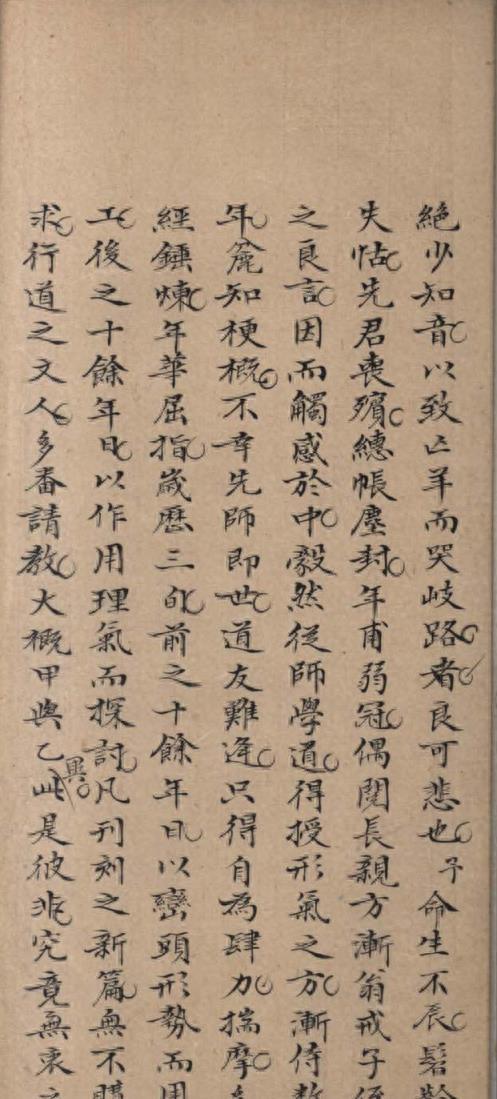 絕少知音以致亡羊而哭岐路者良可悲也予命生不辰髫齡
失怙先君喪殯繐帳塵封年甫弱冠偶閱長親方漸翁戒子侄
之良言因而觸感於中毅然從師學道得授形氣之方漸侍數
年麄知梗概不幸先師即世道友難逢只得自為肆力揣摩多
經錘煉年華屈指歲歷三旬前之十餘年日以巒頭形勢而用
工後之十餘年日以作用理氣而探討凡刊刻之新篇無不購
求行道之文人多番請教大概甲與乙異此是彼非究竟無衷之